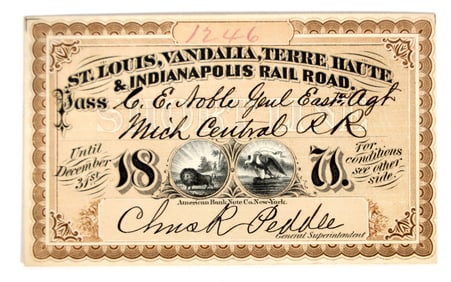 1246
ST. LOUIS, VANDALIA, TERRE HAUTE,
& INDIANAPOLIS RAIL ROAD,
Pass C. E. Noble Genl East'n Agt
Mich Central R R
Until
December
31st
1871.
For
conditions
see other
side.
American Bank Note Co. New-York.
Chas R Peddle
General Superintendent